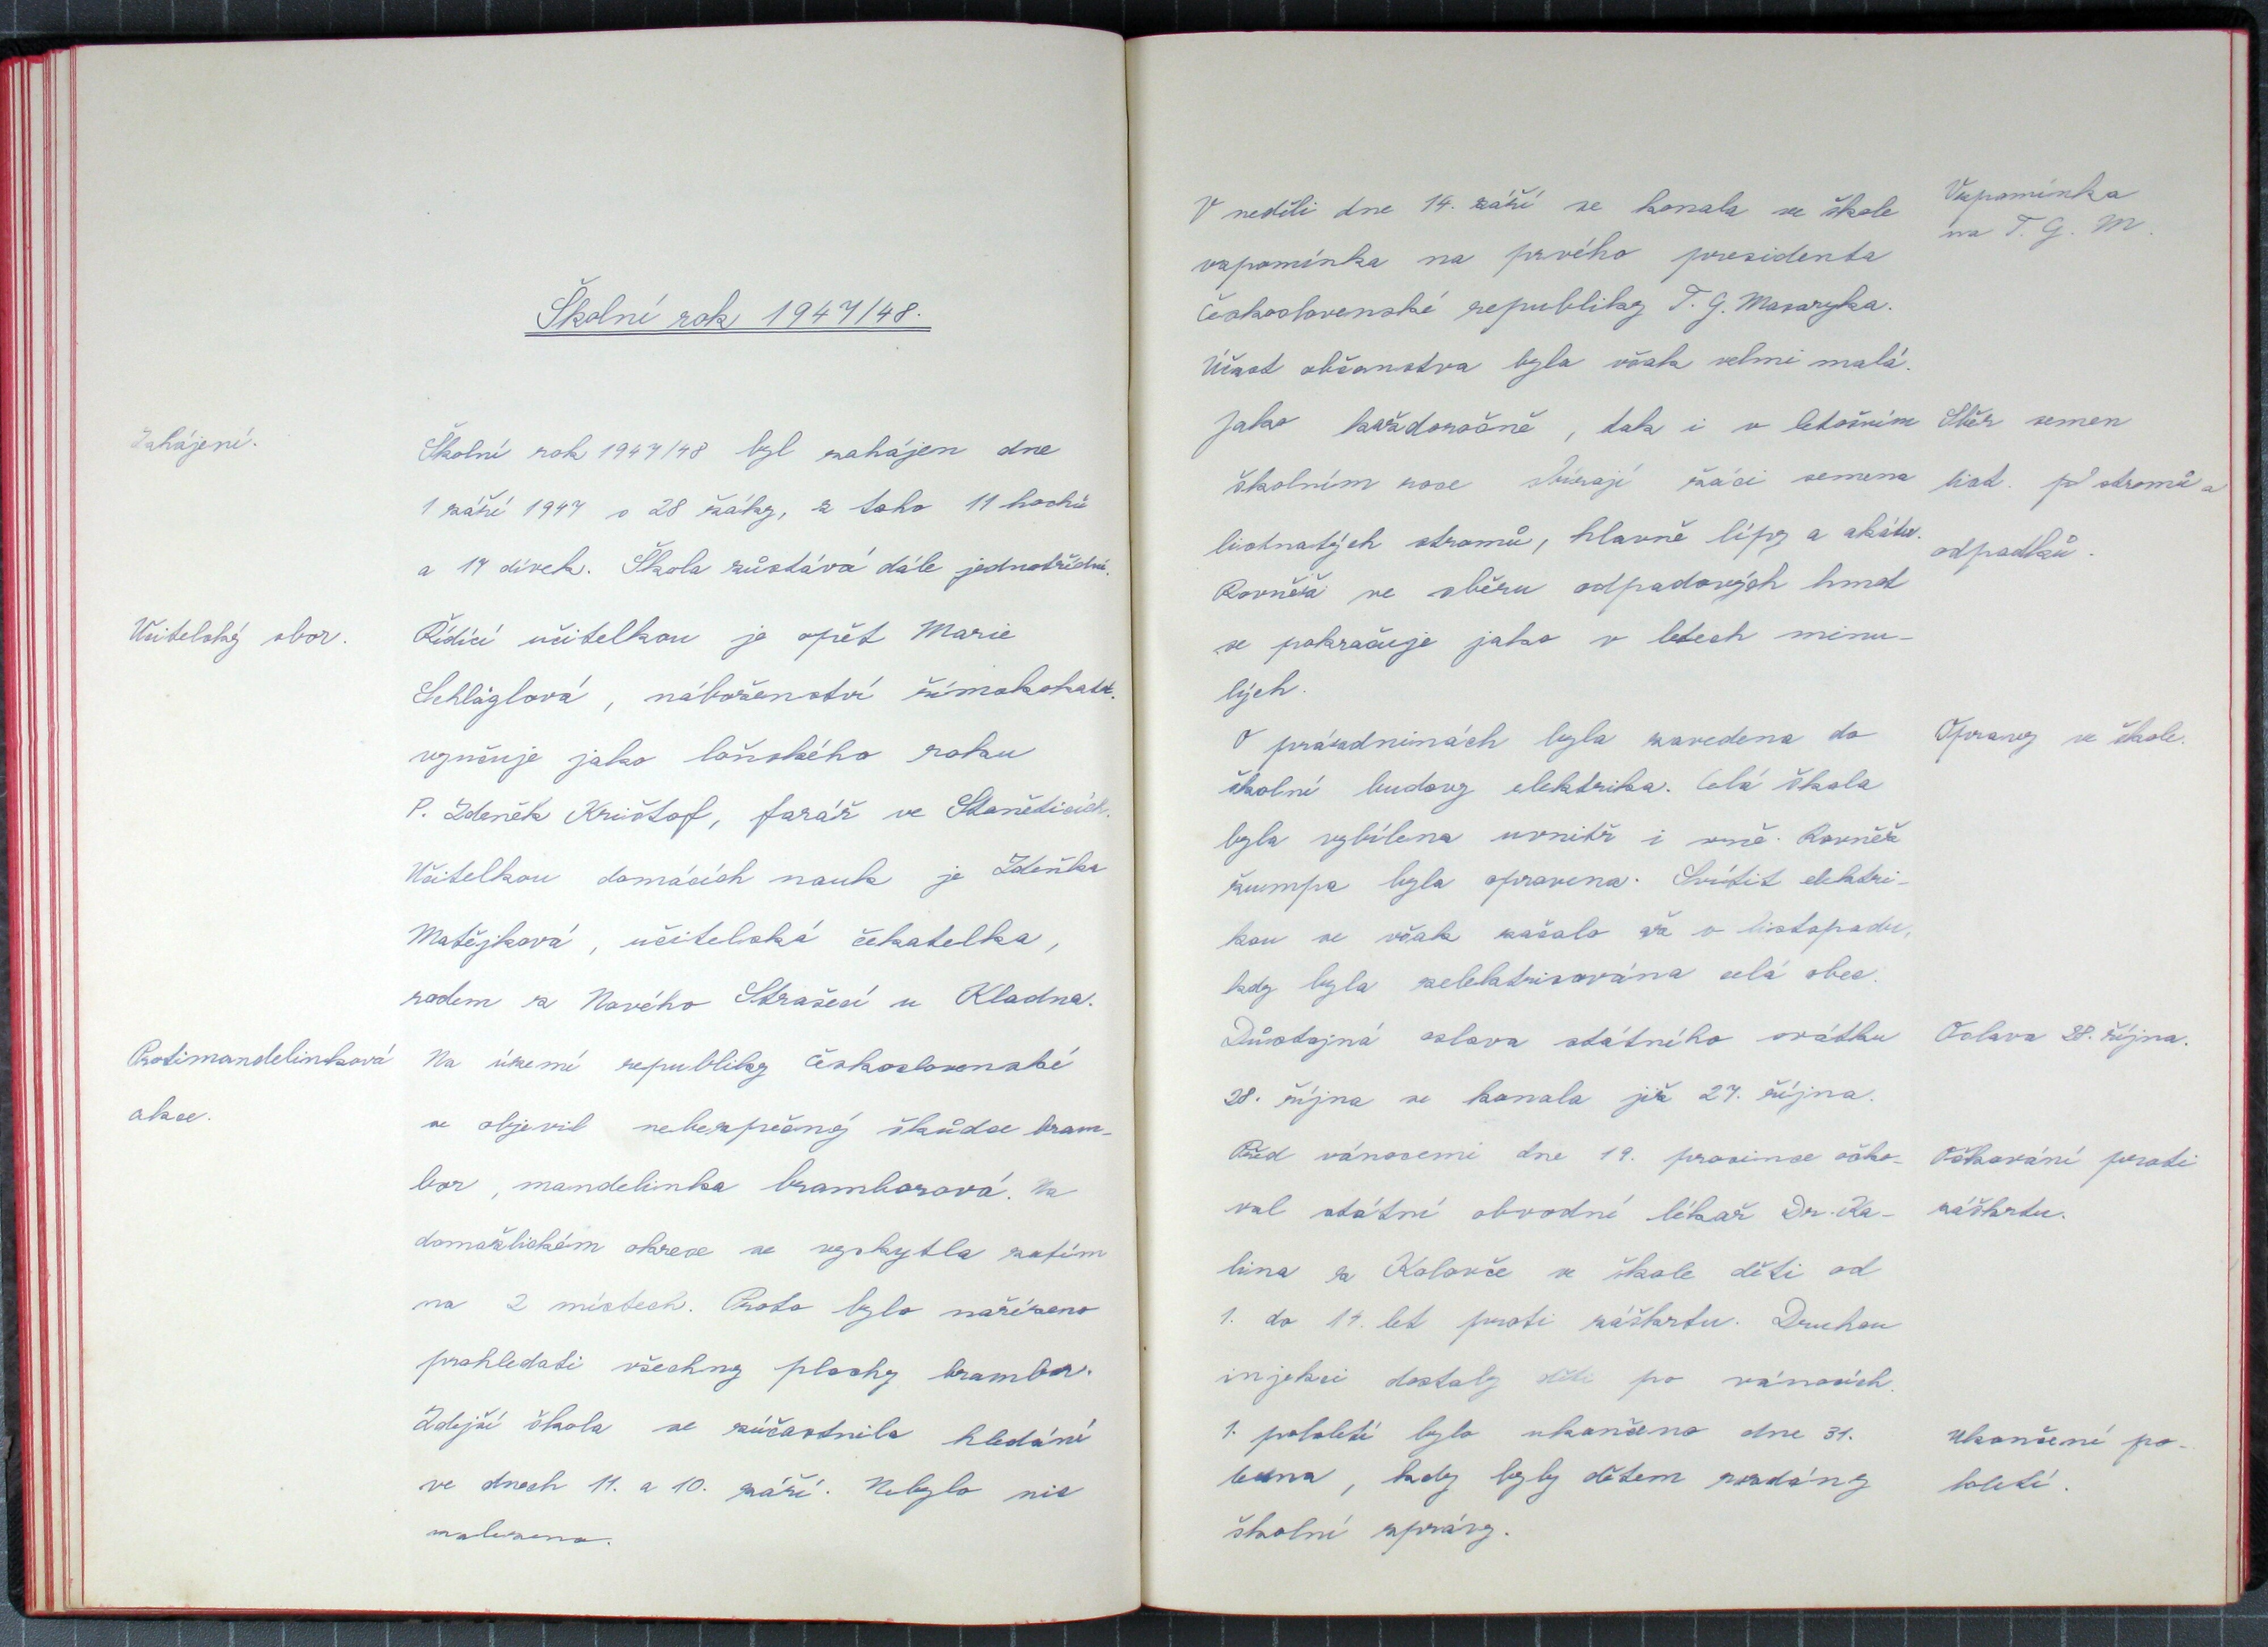 Školní rok 1947/48.
Zahájení.
Školní rok 1947/48 byl zahájen dne
1 září 1947 s 28 žáky, z toho 11 hochů
a 17 dívek. Škola zůstává dále jednotřídní.
Učitelský sbor.
Řídící učitelkou je opět Marie
Schläglová, náboženství římskokatol.
vyučuje jako loňského roku
P. Zdeněk Krištof, farář ve Staněticích.
Učitelkou domácích nauk je Zdeňka
Matějková, učitelská čekatelka,
rodem z Nového Strašecí u Kladna.
Protimandelinková
akce.
Na území republiky Československé
se objevil nebezpečný škůdce bram-
bor, mandelinka bramborová. Na
domažlickém okrese se vyskytla zatím
na 2 místech. Proto bylo nařízeno
prohledati všechny plochy brambor.
Zdejší škola se zúčastnila hledání
ve dnech 11. a 10. září. Nebylo nic
nalezeno.
V neděli dne 14. září se konala ve škole
vzpomínka na prvého presidenta
Československé republiky T. G. Masaryka.
Účast občanstva byla však velmi malá.
Vzpomínka
na T. G. M.
Jako každoročně, tak i v letošním
školním roce sbírají žáci semena
listnatých stromů, hlavně lípy a akátu.
Rovněž ve sběru odpadových hmot
se pokračuje jako v letech minu-
lých.
Sběr semen
list. stromů a
odpadků.
O prázdninách byla zavedena do
školní budovy elektrika. Celá škola
byla vybílena uvnitř i vně. Rovněž
žumpa byla opravena. Svítit elektri-
kou se však začalo až v listopadu,
kdy byla zelektrisována celá obec.
Opravy ve škole.
Důstojná oslava státního svátku
28. října se konala již 27. října.
Oslava 28. října.
Před vánocemi dne 19. prosince očko-
val státní obvodní lékař Dr. Ka-
lina z Koloveče ve škole děti od
1. do 14. let proti záškrtu. Druhou
injekci dostaly děti po vánocích.
Očkování proti
záškrtu.
1. pololetí bylo ukončeno dne 31.
ledna, kdy byly dětem rozdány
školní zprávy.
Ukončení po-
loletí.